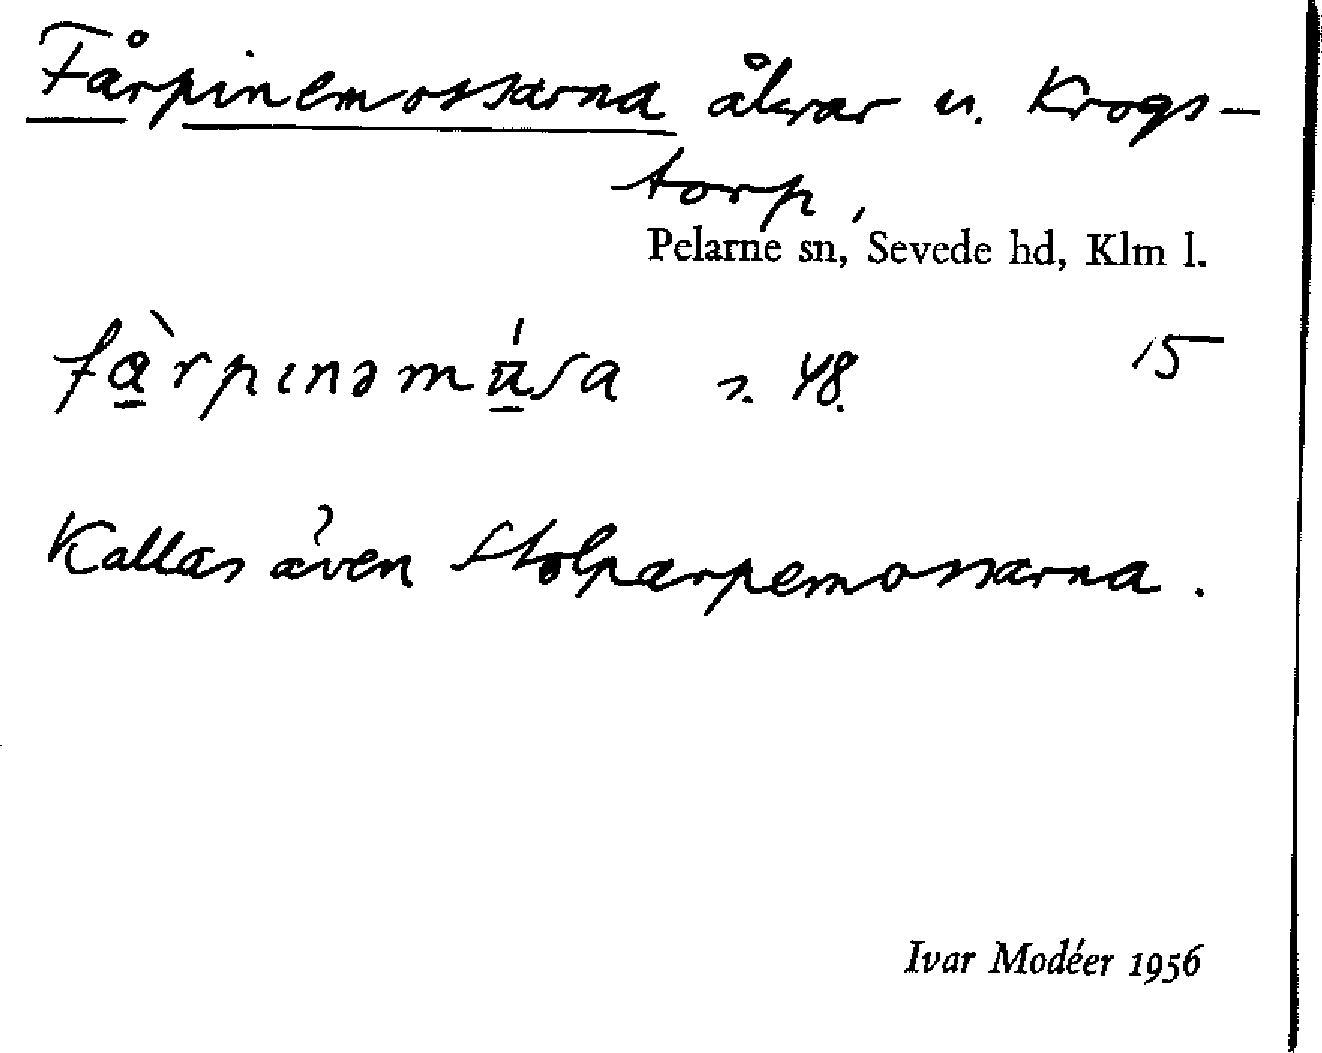 Fårpinemossarna åkrar u. Krogs-
torp,
Pelarne sn, Sevede hd, Klm l.
fàrpınəmu̇sa 2. 48. 15
Kallas även Stolparpemossarna.
Ivar Modéer 1956